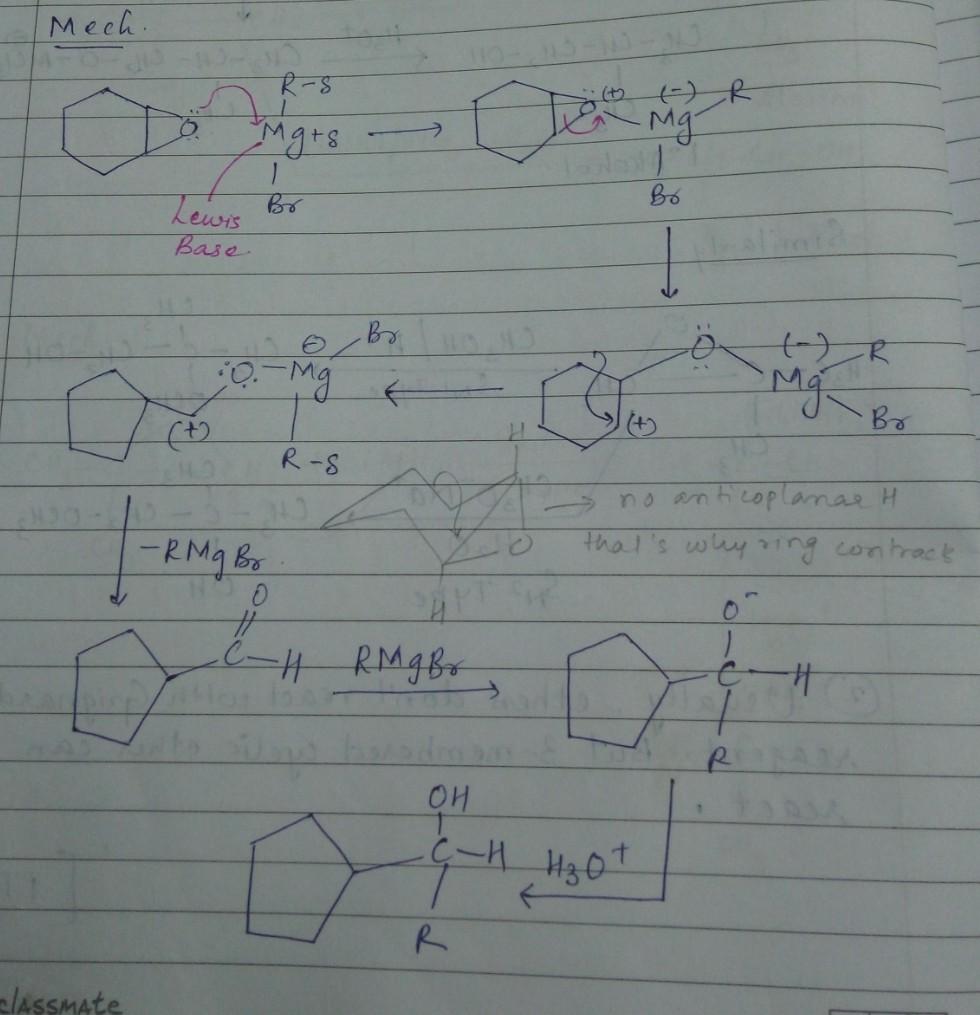 Mech.
R-δ
Ö Mg+δ → Ö(+) (-) Mg R
Br Br
Lewis
Base
Ö (-) R
Mg
(+) Br
:Ö.-Mg ⊖ Br
(+)
R-δ
H
→ no anticoplanar H
O that's why ring contract
H
-RMgBr
O O⁻
C-H RMgBr C-H
R
OH
C-H H3O+
R
classmate